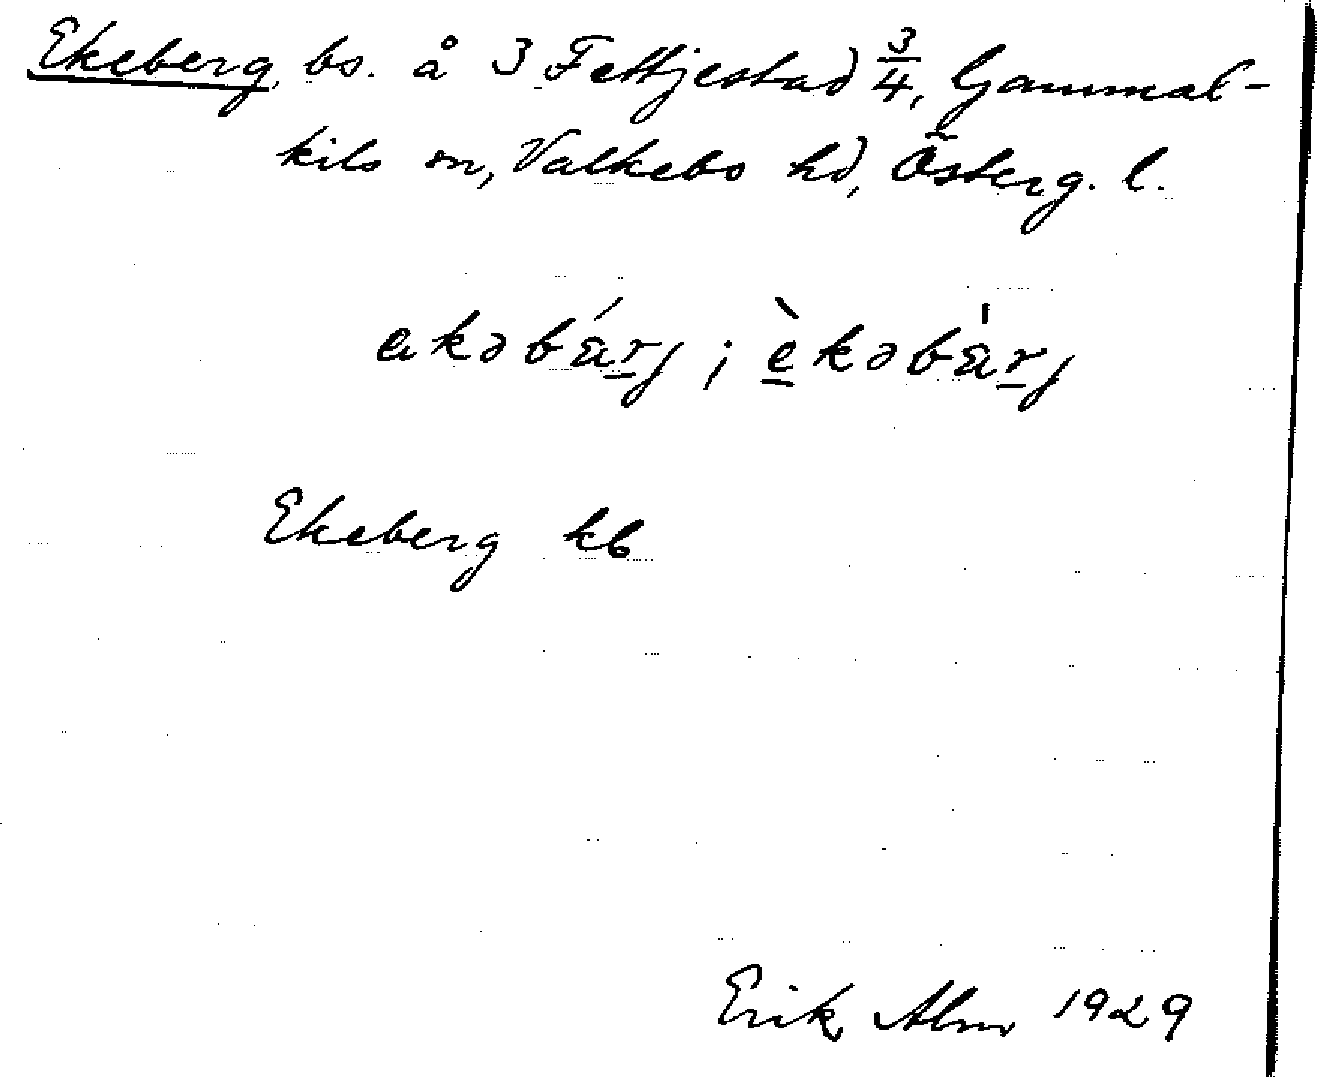 Ekeberg, bs. å 3 Fettjestad 3/4, Gammal-
kils sn, Valkebo hd, Österg. l.
ekəbá̈rj ; èkəbá̈rj
Ekeberg kb
Erik Alm 1929